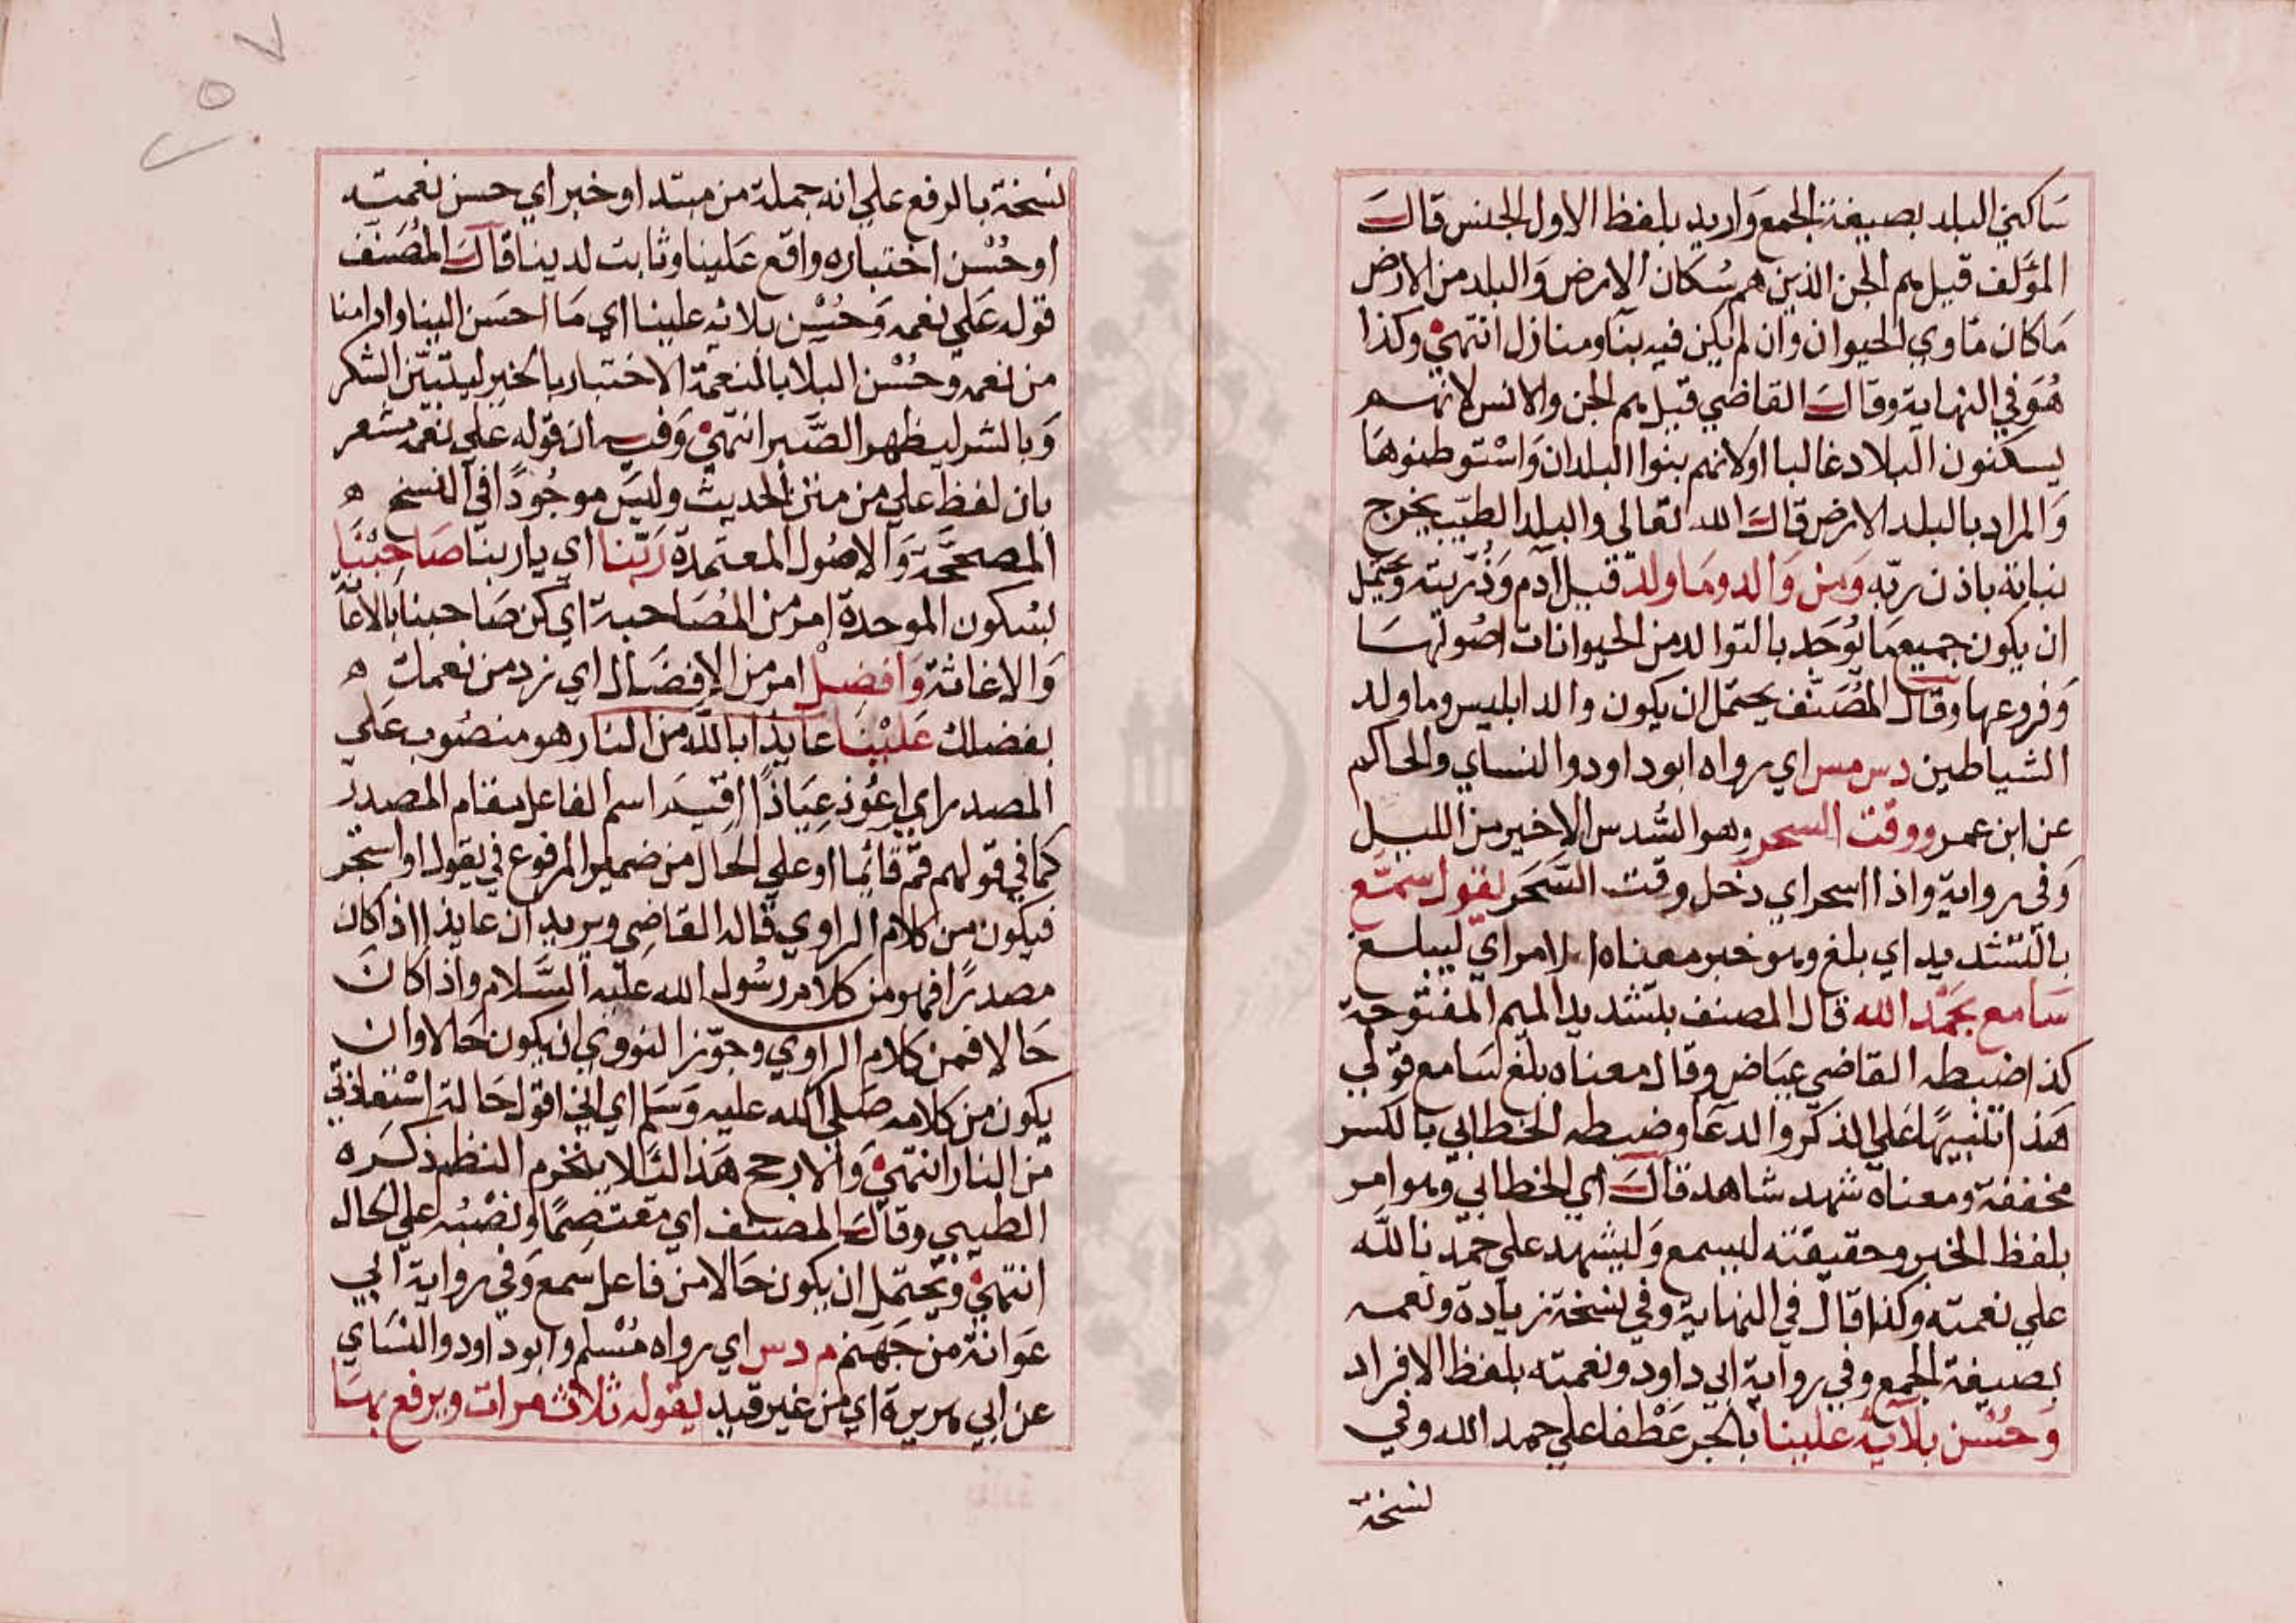 ساكني البلد بصيغة الجمع واريد بلفظ الاول الجنس قال
المؤلف قيل هم الجن الذين هم سُكان الارض والبلد من الارض
ما كان ماوي الحيوان وان لم يكن فيه بنا ومنازل انتهي وكذا
هو في النهاية وقال القاضي قيل هم الجن والانس لانهم
يسكنون البلاد غالبا اولانهم بنوا البلدان واستوطنوها
والمراد بالبلد الارض قال الله تعالي والبلد الطيّب يخرج
نباته باذن ربّه ومن والد وما ولد قيل آدم وذُرّيته ويحتمل
ان يكون جميع ما يُوجد بالتوالد من الحيوانات اصُولها
وفروعها وقال المُصَنّف يحتمل ان يكون والد ابليس وما ولد
الشياطين دس مس اي رواه ابوداود والنساي والحاكم
عن ابن عمر ووقت السحر وهو السُّدس الاخير من الليل
وفي رواية واذا اسحر اي دخل وقت السَّحَر يقول سمّع
بالتشديد اي بلغ وهو خبر معناه الامر اي ليبلغ
سامع بحمد الله قال المصنف بتشديد الميم المفتوحة
كذا ضبطه القاضي عياض وقال معناه بلغ سامع قولي
هذا تنبيها علي الذكر والدعا وضبطه الخطابي بالكسر
مخففة ومعناه شهد شاهد قال اي الخطابي وهو امر
بلفظ الخبر وحقيقته ليسمع وليشهد علي حمدنا لله
علي نعمته وكذا قال في النهاية وفي نسخة زيادة ونعمه
بصيغة الجمع وفي رواية ابي داود ونعمته بلفظ الافراد
وحُسْن بلائه علينا بالجر عَطْفا علي حمد الله وفي
نسخة
نسخة بالرفع علي انه جملة من مبتدا وخبر اي حسن نعمته
او حُسْن اختباره واقع علينا وثابت لدينا قال المُصَنّف
قوله علي نعمه وحُسْن بلائه علينا اي ما احسَن الينا واولانا
من نعمه وحُسْن البلا بالنعمة الاختبار بالخير ليتبيّن الشكر
وبالشر ليظهر الصّبر انتهي وفيه ان قوله علي نعمه مشعر
بان لفظ علي من متن الحديث وليس موجُودًا في النسخ ه
المصححَّة والاصُول المعتمدة رَبّنا اي ياربنا صاحِبْنا
بسُكون الموحدة امر من المُصَاحبة اي كن صَاحبنا بالاعانة
والاغاثة وافضِلْ امر من الإفضال اي زد من نعمك ه
بفضلك عَلَيْنا عايذا بالله من النار هو منصُوب علي
المصدر اي اعُوذ عِيَاذًا اقيم اسم الفاعل مقام المصدر
كما في قولهم قُم قائِما او علي الحال من ضمير المرفوع في يقول او اسحر
فيكون من كلام الراوي قاله القاضي ويريد ان عايذا اذا كان
مصدرًا فهو من كلام رسُول الله عليه السَّلام واذا كان
حالا فمن كلام الراوي وجوّز النووي ان يكون حَالا وان
يكون من كلامه صَلي الله عليه وَسَلم اي اني اقول حَالة اسْتعاذتي
من النار انتهي والارجح هَذا لئَلا ينخرم النظم ذكَره
الطيبي وقال المصنف اي معتصمًا ونَصْبُه علي الحال
انتهي ويحتمل ان يكون حَالا من فاعل سَمع وَفي رواية ابي
عَوانة من جَهَنم م دس اي رواه مُسْلم وابوداود والنسَاي
عن ابي هريرة اي من غير قيد يقوله ثلاث مرات ويرفع بها